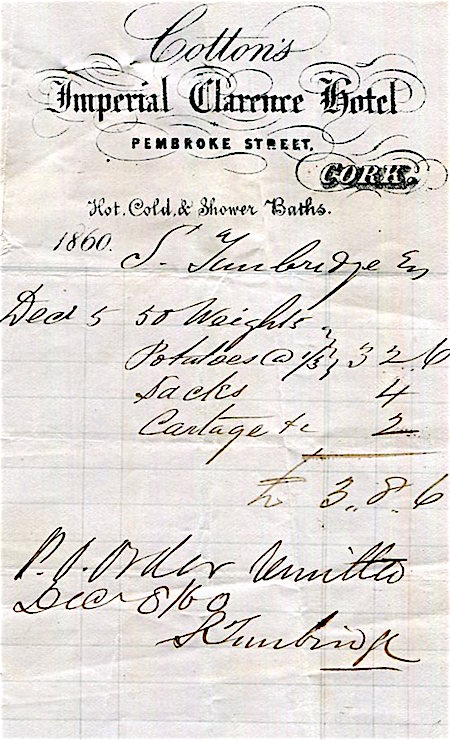 Cotton's
Imperial Clarence Hotel
PEMBROKE STREET,
CORK.
Hot, Cold, & Shower Baths.
1860. S. Tunbridge Esq
Decr 5 50 Weights
Potatoes @ 1/3 3 2 6
Sacks 4
Cartage &c 2
£ 3 . 8 . 6
P. O. Order remitted
Decr 8/60
S Tunbridge